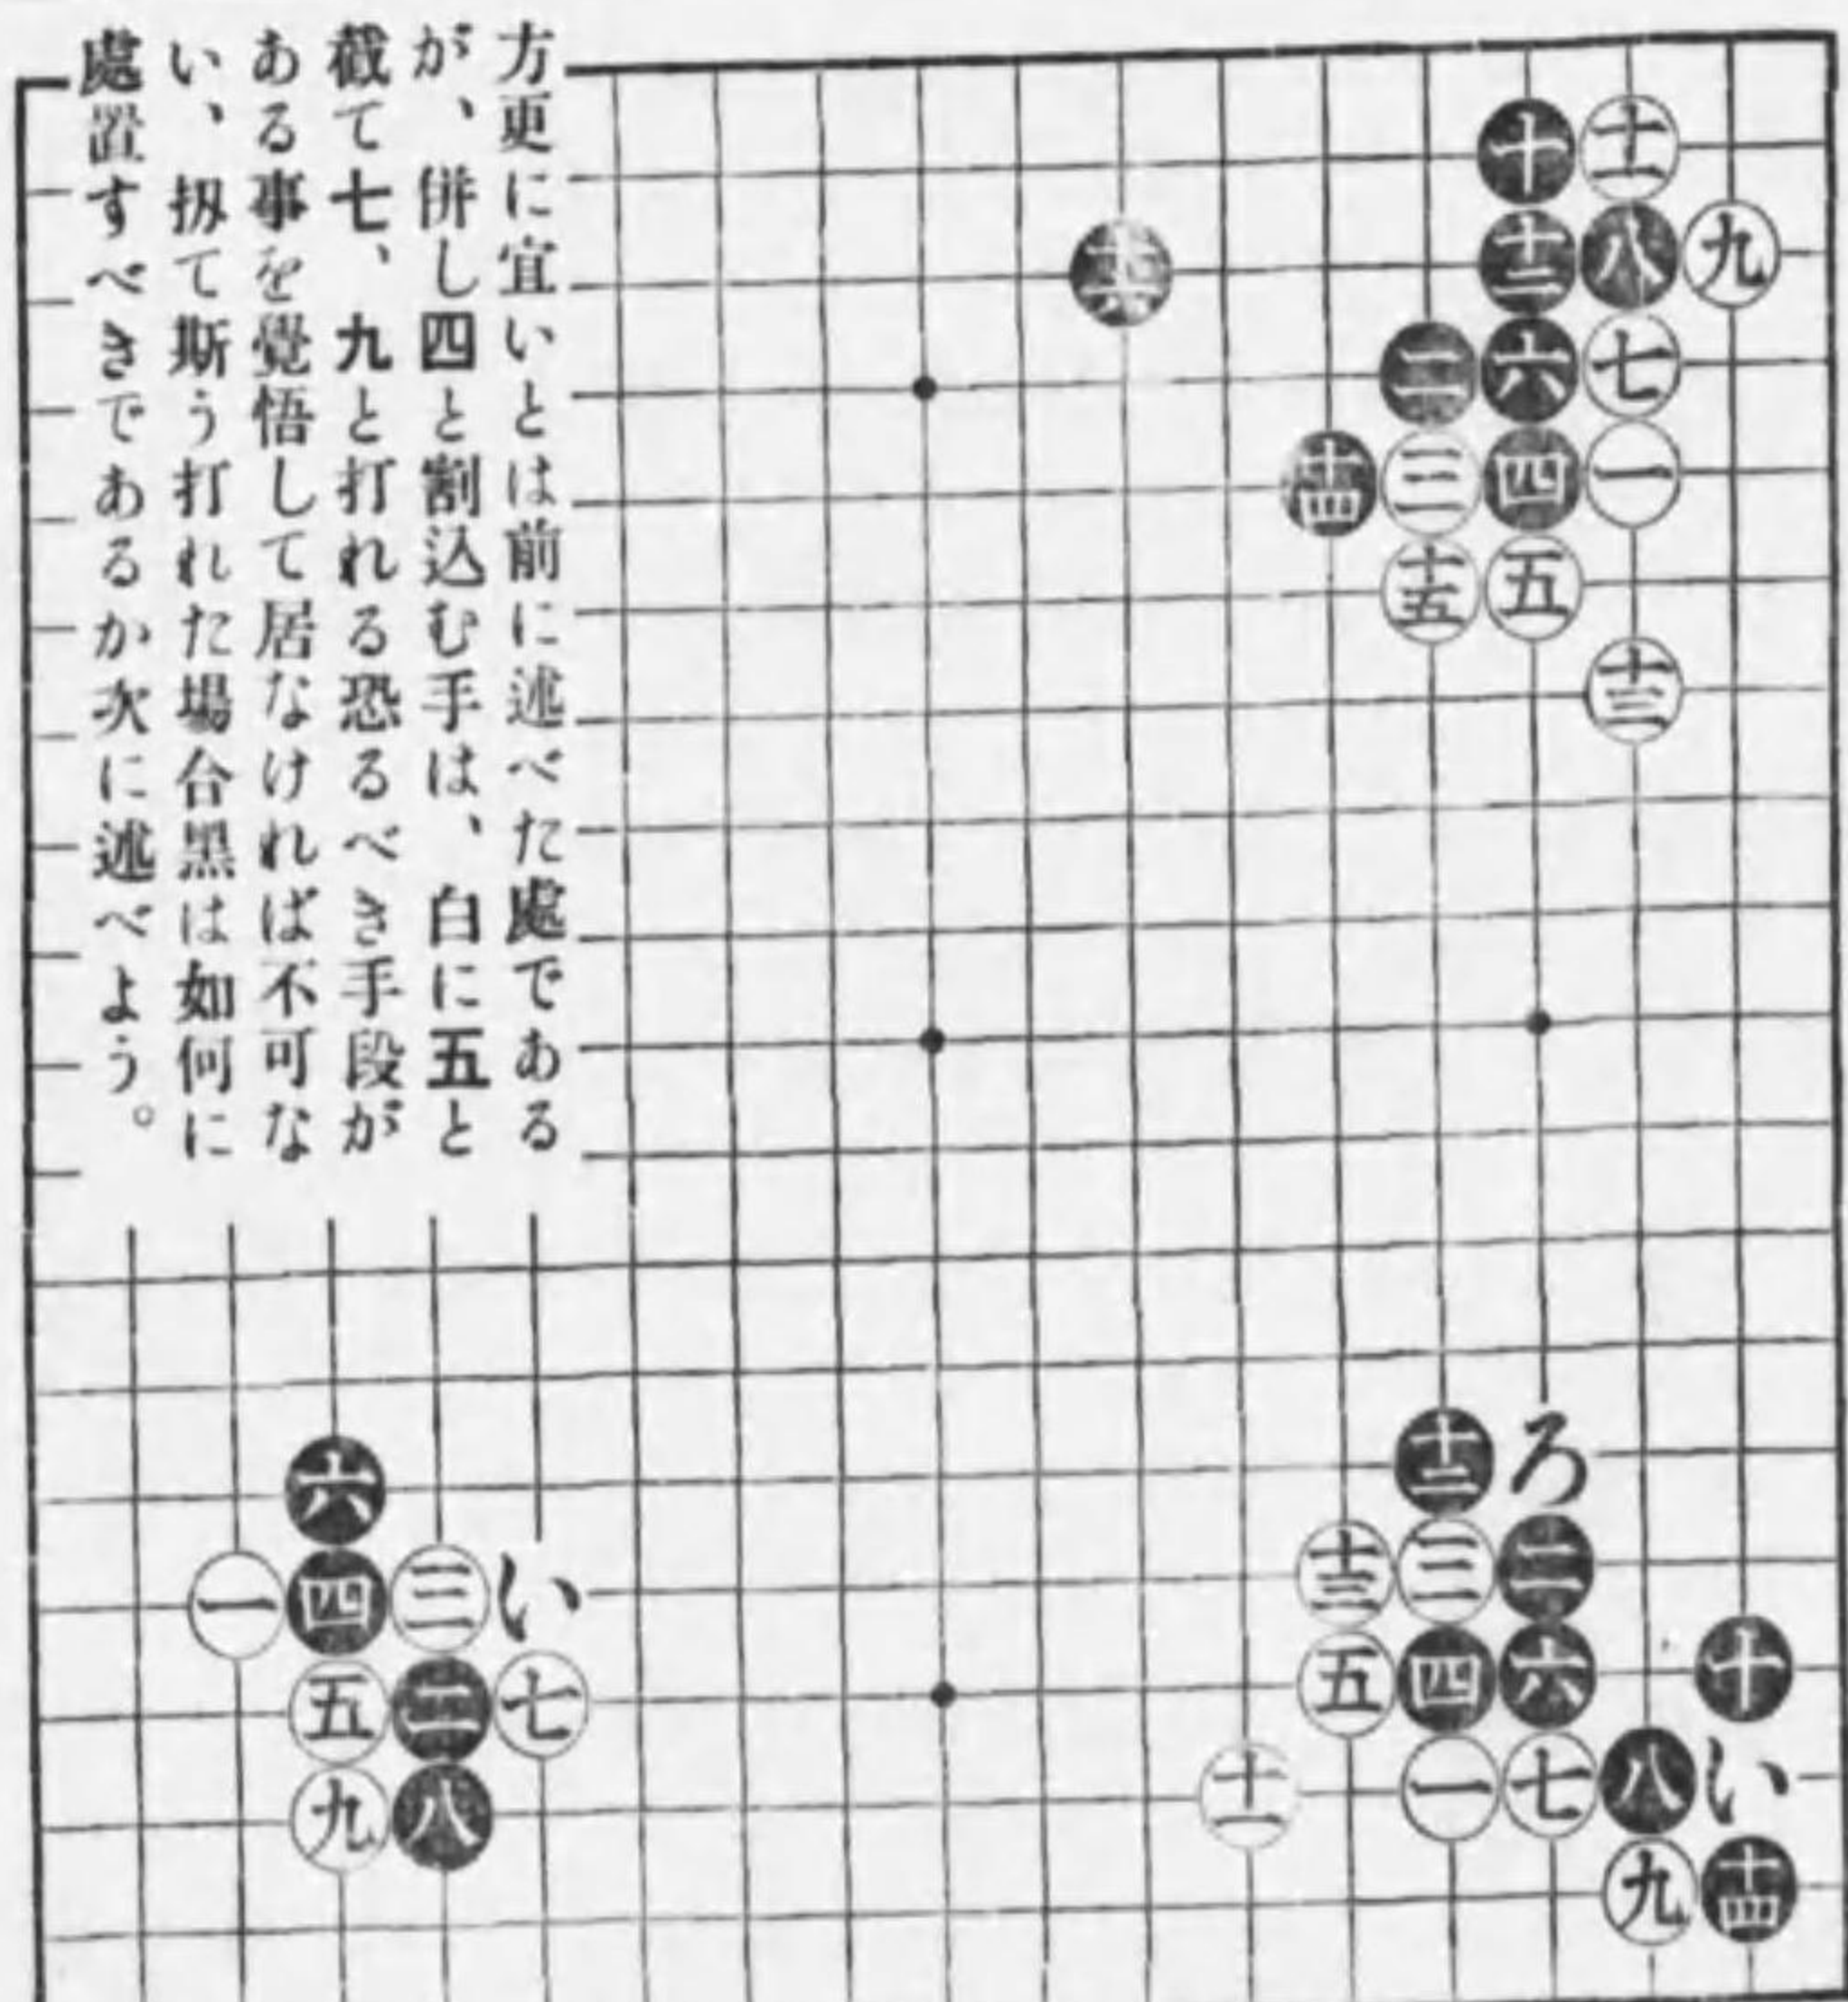 方更に宜いとは前に述べた處である
が、併し四と割込む手は、白に五と
截て七、九と打れる恐るべき手段が
ある事を覺悟して居なければ不可な
い、扨て斯う打れた場合黑は如何に
處置すべきであるか次に述べよう。
十 十一
十六 十二 八 九
二 六 七
十四 三 四 一
十五 五
十三
十二 ろ
六
十三 三 二
一 四 三 い
五 四 六 十
五 二 七
十一 一 七 八 い
九 八
九 十四